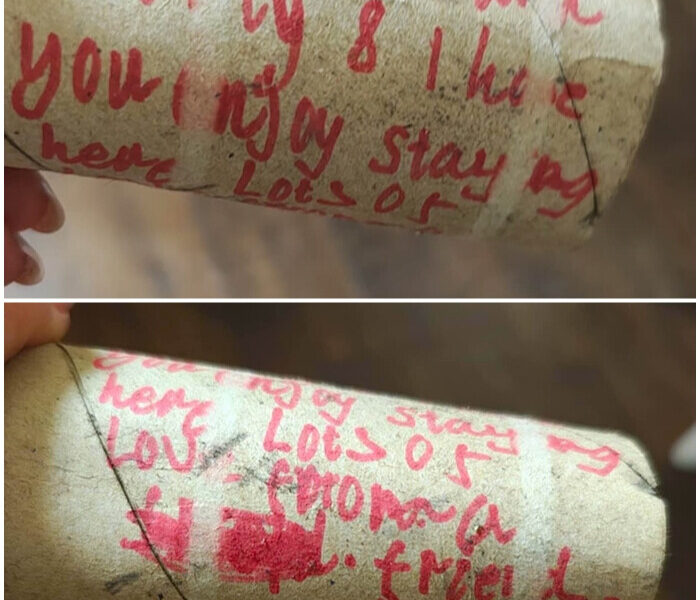 8 I hope
you injoy staying
here Lots of
you injoy staying
here Lots of
Love from a
friend.